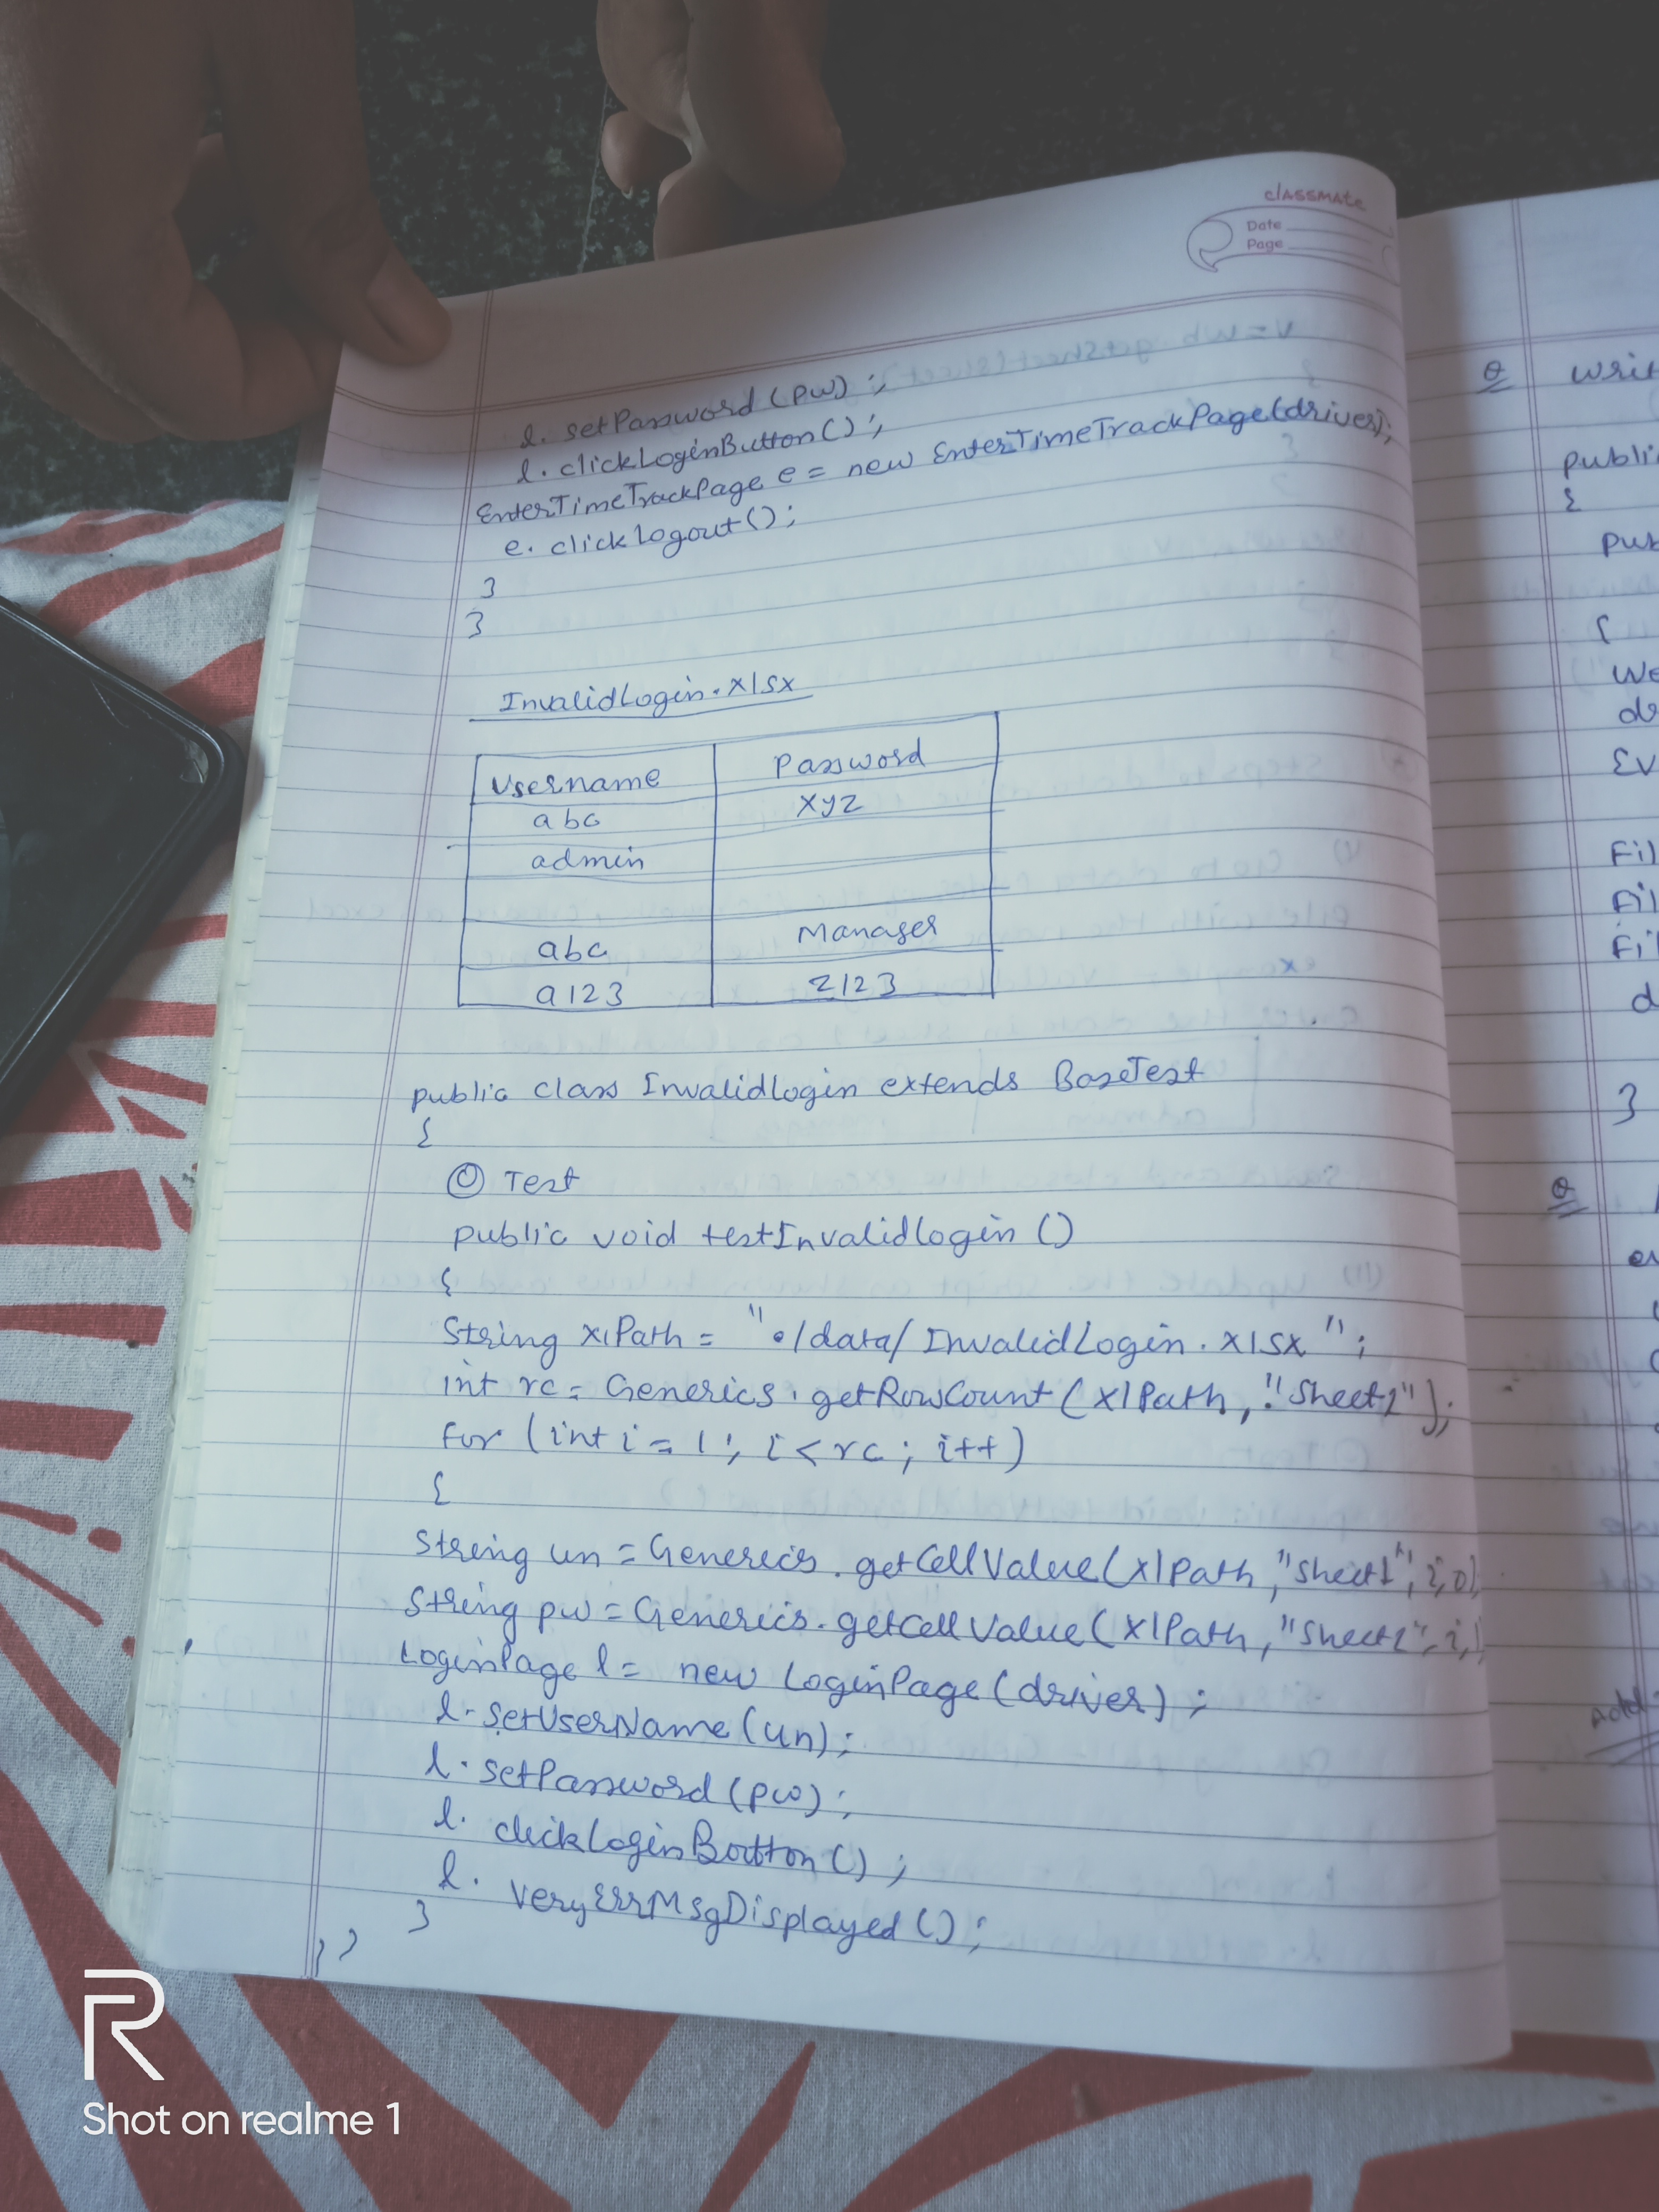 classmate
Date
Page
l. setPassword (pw) ;
l. clickLoginButton() ;
EnterTimeTrackPage e = new EnterTimeTrackPage(driver);
e. clickLogout();
}
}
InvalidLogin.xlsx
Username Password
abc xyz
admin
Manager
abc
a123 z123
public class InvalidLogin extends BaseTest
{
@ Test
public void testInvalidLogin ()
{
String xlPath = "./data/InvalidLogin.xlsx";
int rc = Generics.getRowCount (xlPath, "Sheet1");
for (int i = 1; i < rc ; i++)
{
String un = Generics.getCellValue(xlPath, "Sheet1", i, 0)
String pw = Generics.getCellValue(xlPath, "Sheet1", i,
LoginPage l = new LoginPage (driver) ;
l. setUserName (un);
l. setPassword (pw);
l. clickLoginBotton () ;
l. veryErrMsgDisplayed () ;
}
} }
Q Writ
publi
{
pub
{
We
dr
Ev
Fil
Fil
Fil
d
}
Q
Add
R
Shot on realme 1